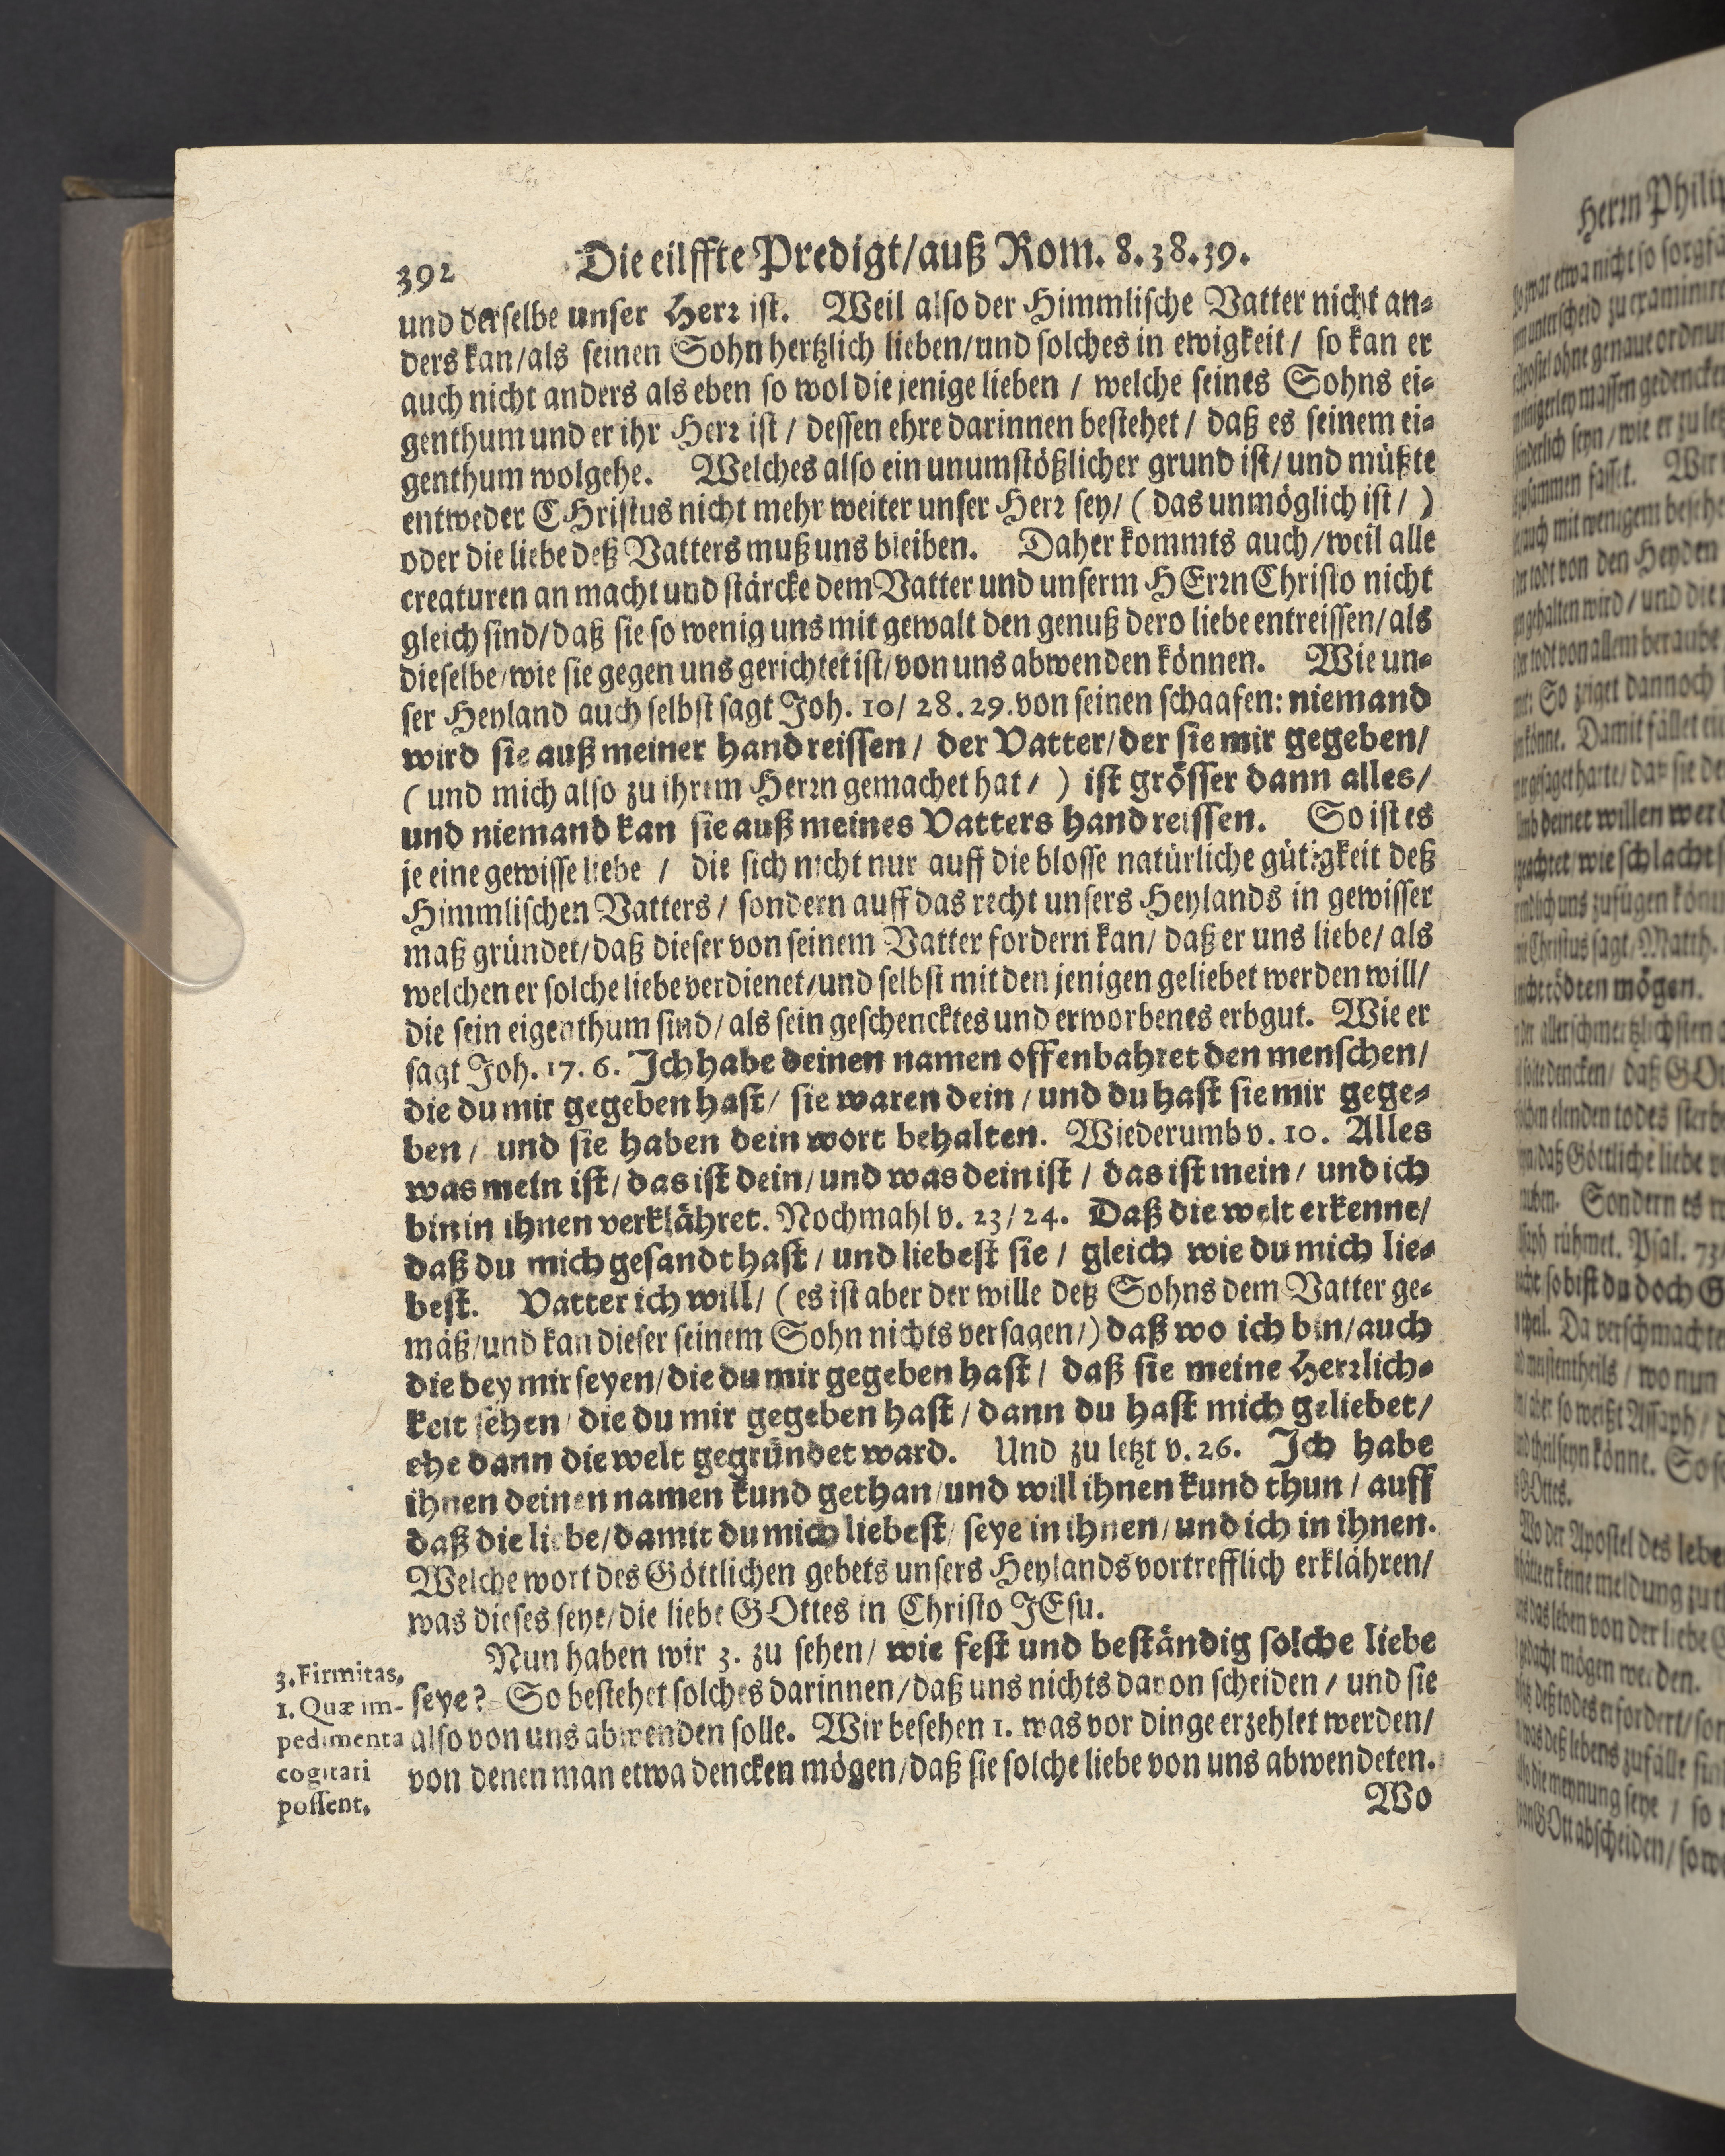 392 Die eilffte Predigt/auß Rom. 8.38.39.
und derselbe unser Herr ist. Weil also der Himmlische Vatter nicht an-
ders kan/als seinen Sohn hertzlich lieben/und solches in ewigkeit/ so kan er
auch nicht anders als eben so wol die jenige lieben / welche seines Sohns ei-
genthum und er ihr Herr ist / dessen ehre darinnen bestehet / daß es seinem ei-
genthum wolgehe. Welches also ein unumstößlicher grund ist/und müßte
entweder CHristus nicht mehr weiter unser Herr sey/ (das unmöglich ist/)
oder die liebe deß Vatters muß uns bleiben. Daher kommts auch/weil alle
creaturen an macht und stärcke dem Vatter und unserm HErrn Christo nicht
gleich sind/daß sie so wenig uns mit gewalt den genuß dero liebe entreissen/als
dieselbe/wie sie gegen uns gerichtet ist/von uns abwenden können. Wie un-
ser Heyland auch selbst sagt Joh. 10/28.29. von seinen schaafen: niemand
wird sie auß meiner hand reissen/ der Vatter/der sie mir gegeben/
(und mich also zu ihrem Herrn gemachet hat/) ist grösser dann alles/
und niemand kan sie auß meines Vatters hand reissen. So ist es
je eine gewisse liebe / die sich nicht nur auff die blosse natürliche gütigkeit deß
Himmlischen Vatters/ sondern auff das recht unsers Heylands in gewisser
maß gründet/daß dieser von seinem Vatter fordern kan/ daß er uns liebe/ als
welchen er solche liebe verdienet/und selbst mit den jenigen geliebet werden will/
die sein eigenthum sind/als sein geschencktes und erworbenes erbgut. Wie er
sagt Joh. 17. 6. Ich habe deinen namen offenbahret den menschen/
die du mir gegeben hast/ sie waren dein/und du hast sie mir gege-
ben/ und sie haben dein wort behalten. Wiederumb v. 10. Alles
was mein ist/das ist dein/und was dein ist / das ist mein/ und ich
bin in ihnen verklähret. Nochmahl v. 23/24. Daß die welt erkenne/
daß du mich gesandt hast/und liebest sie / gleich wie du mich lie-
best. Vatter ich will/ (es ist aber der wille deß Sohns dem Vatter ge-
mäß/und kan dieser seinem Sohn nichts versagen/) daß wo ich bin/auch
die bey mir seyen/die du mir gegeben hast/ daß sie meine Herrlich-
keit sehen/die du mir gegeben hast/dann du hast mich geliebet/
ehe dann die welt gegründet ward. Und zu letzt v. 26. Ich habe
ihnen deinen namen kund gethan/und will ihnen kund thun/auff
daß die liebe/damit du mich liebest/seye in ihnen/und ich in ihnen.
Welche wort des Göttlichen gebets unsers Heylands vortrefflich erklähren/
was dieses seye/die liebe GOttes in Christo JEsu.
Nun haben wir 3. zu sehen/ wie fest und beständig solche liebe
seye? So bestehet solches darinnen/daß uns nichts davon scheiden / und sie
also von uns abwenden solle. Wir besehen 1. was vor dinge erzehlet werden/
von denen man etwa dencken mögen/daß sie solche liebe von uns abwendeten.
Wo
3. Firmitas.
1. Quæ im-
pedimenta
cogitari
possent.